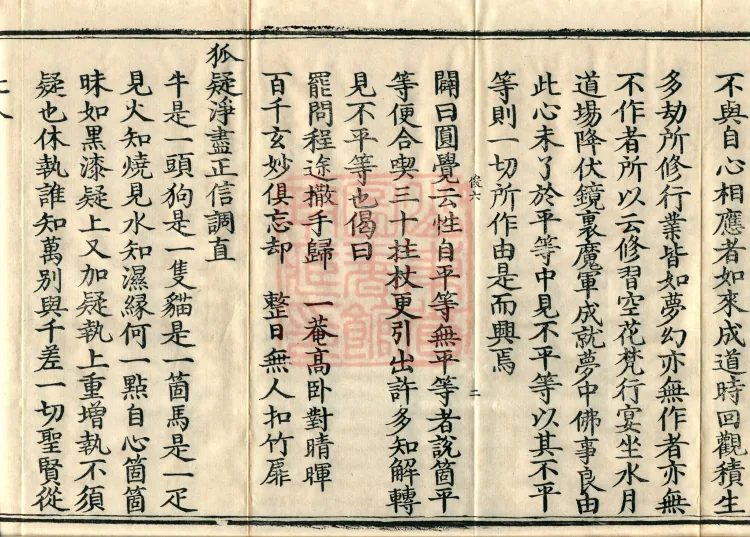 不與自心相應者如來成道時回觀積生
多劫所修行業皆如夢幻亦無作者亦無
不作者所以云修習空花梵行宴坐水月
道場降伏鏡裏魔軍成就夢中佛事良由
此心未了於平等中見不平等以其不平
等則一切所作由是而興焉
俊六
二
闢曰圓覺云性自平等無平等者說箇平
等便合喫三十拄杖更引出許多知解轉
見不平等也偈曰
罷問程途撒手歸 一菴高卧對晴暉
百千玄妙俱忘却 整日無人扣竹扉
狐疑淨盡正信調直
牛是一頭狗是一隻貓是一箇馬是一疋
見火知燒見水知濕緣何一點自心箇箇
昧如黑漆疑上又加疑執上重增執不須
疑也休執誰知萬別與千差一切聖賢從